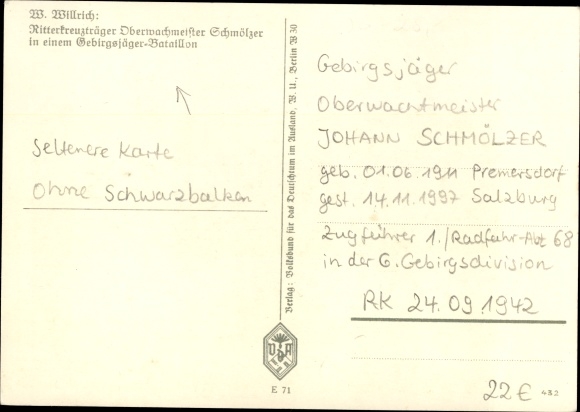 W. Willrich:
Ritterkreuzträger Oberwachmeister Schmölzer
in einem Gebirgsjäger-Bataillon
Seltenere Karte
Ohne Schwarzbalken
Verlag: Volksbund für das Deutschtum im Ausland, W. U., Berlin W 30
VDA
E 71
Gebirgsjäger
Oberwachtmeister
JOHANN SCHMÖLZER
geb. 01.06.1911 Premersdorf
gest. 14.11.1997 Salzburg
Zugführer 1./Radfahr-Abt 68
in der 6. Gebirgsdivision
RK 24.09.1942
22€ 432